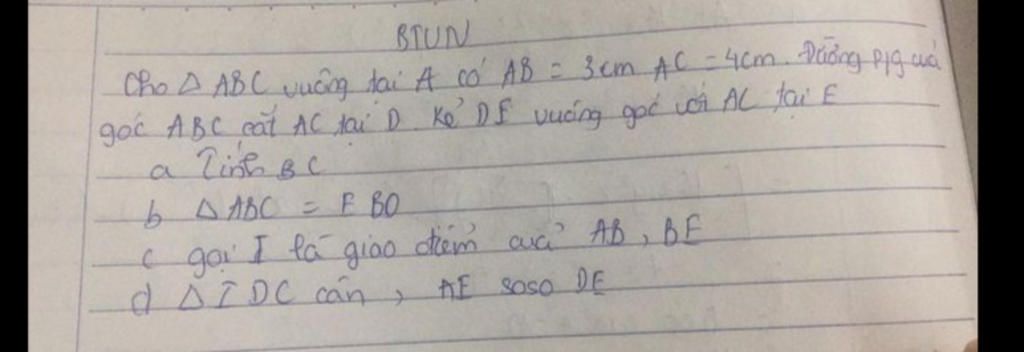 BTVN
Cho Δ ABC vuông tại A có AB = 3cm AC = 4cm. Đường p/g của
góc ABC cắt AC tại D. Kẻ DE vuông góc với AC tại E
a Tính BC
b Δ ABC = EBD
c gọi I là giao điểm của AB, BE
d Δ IDC cân, AE soso DE